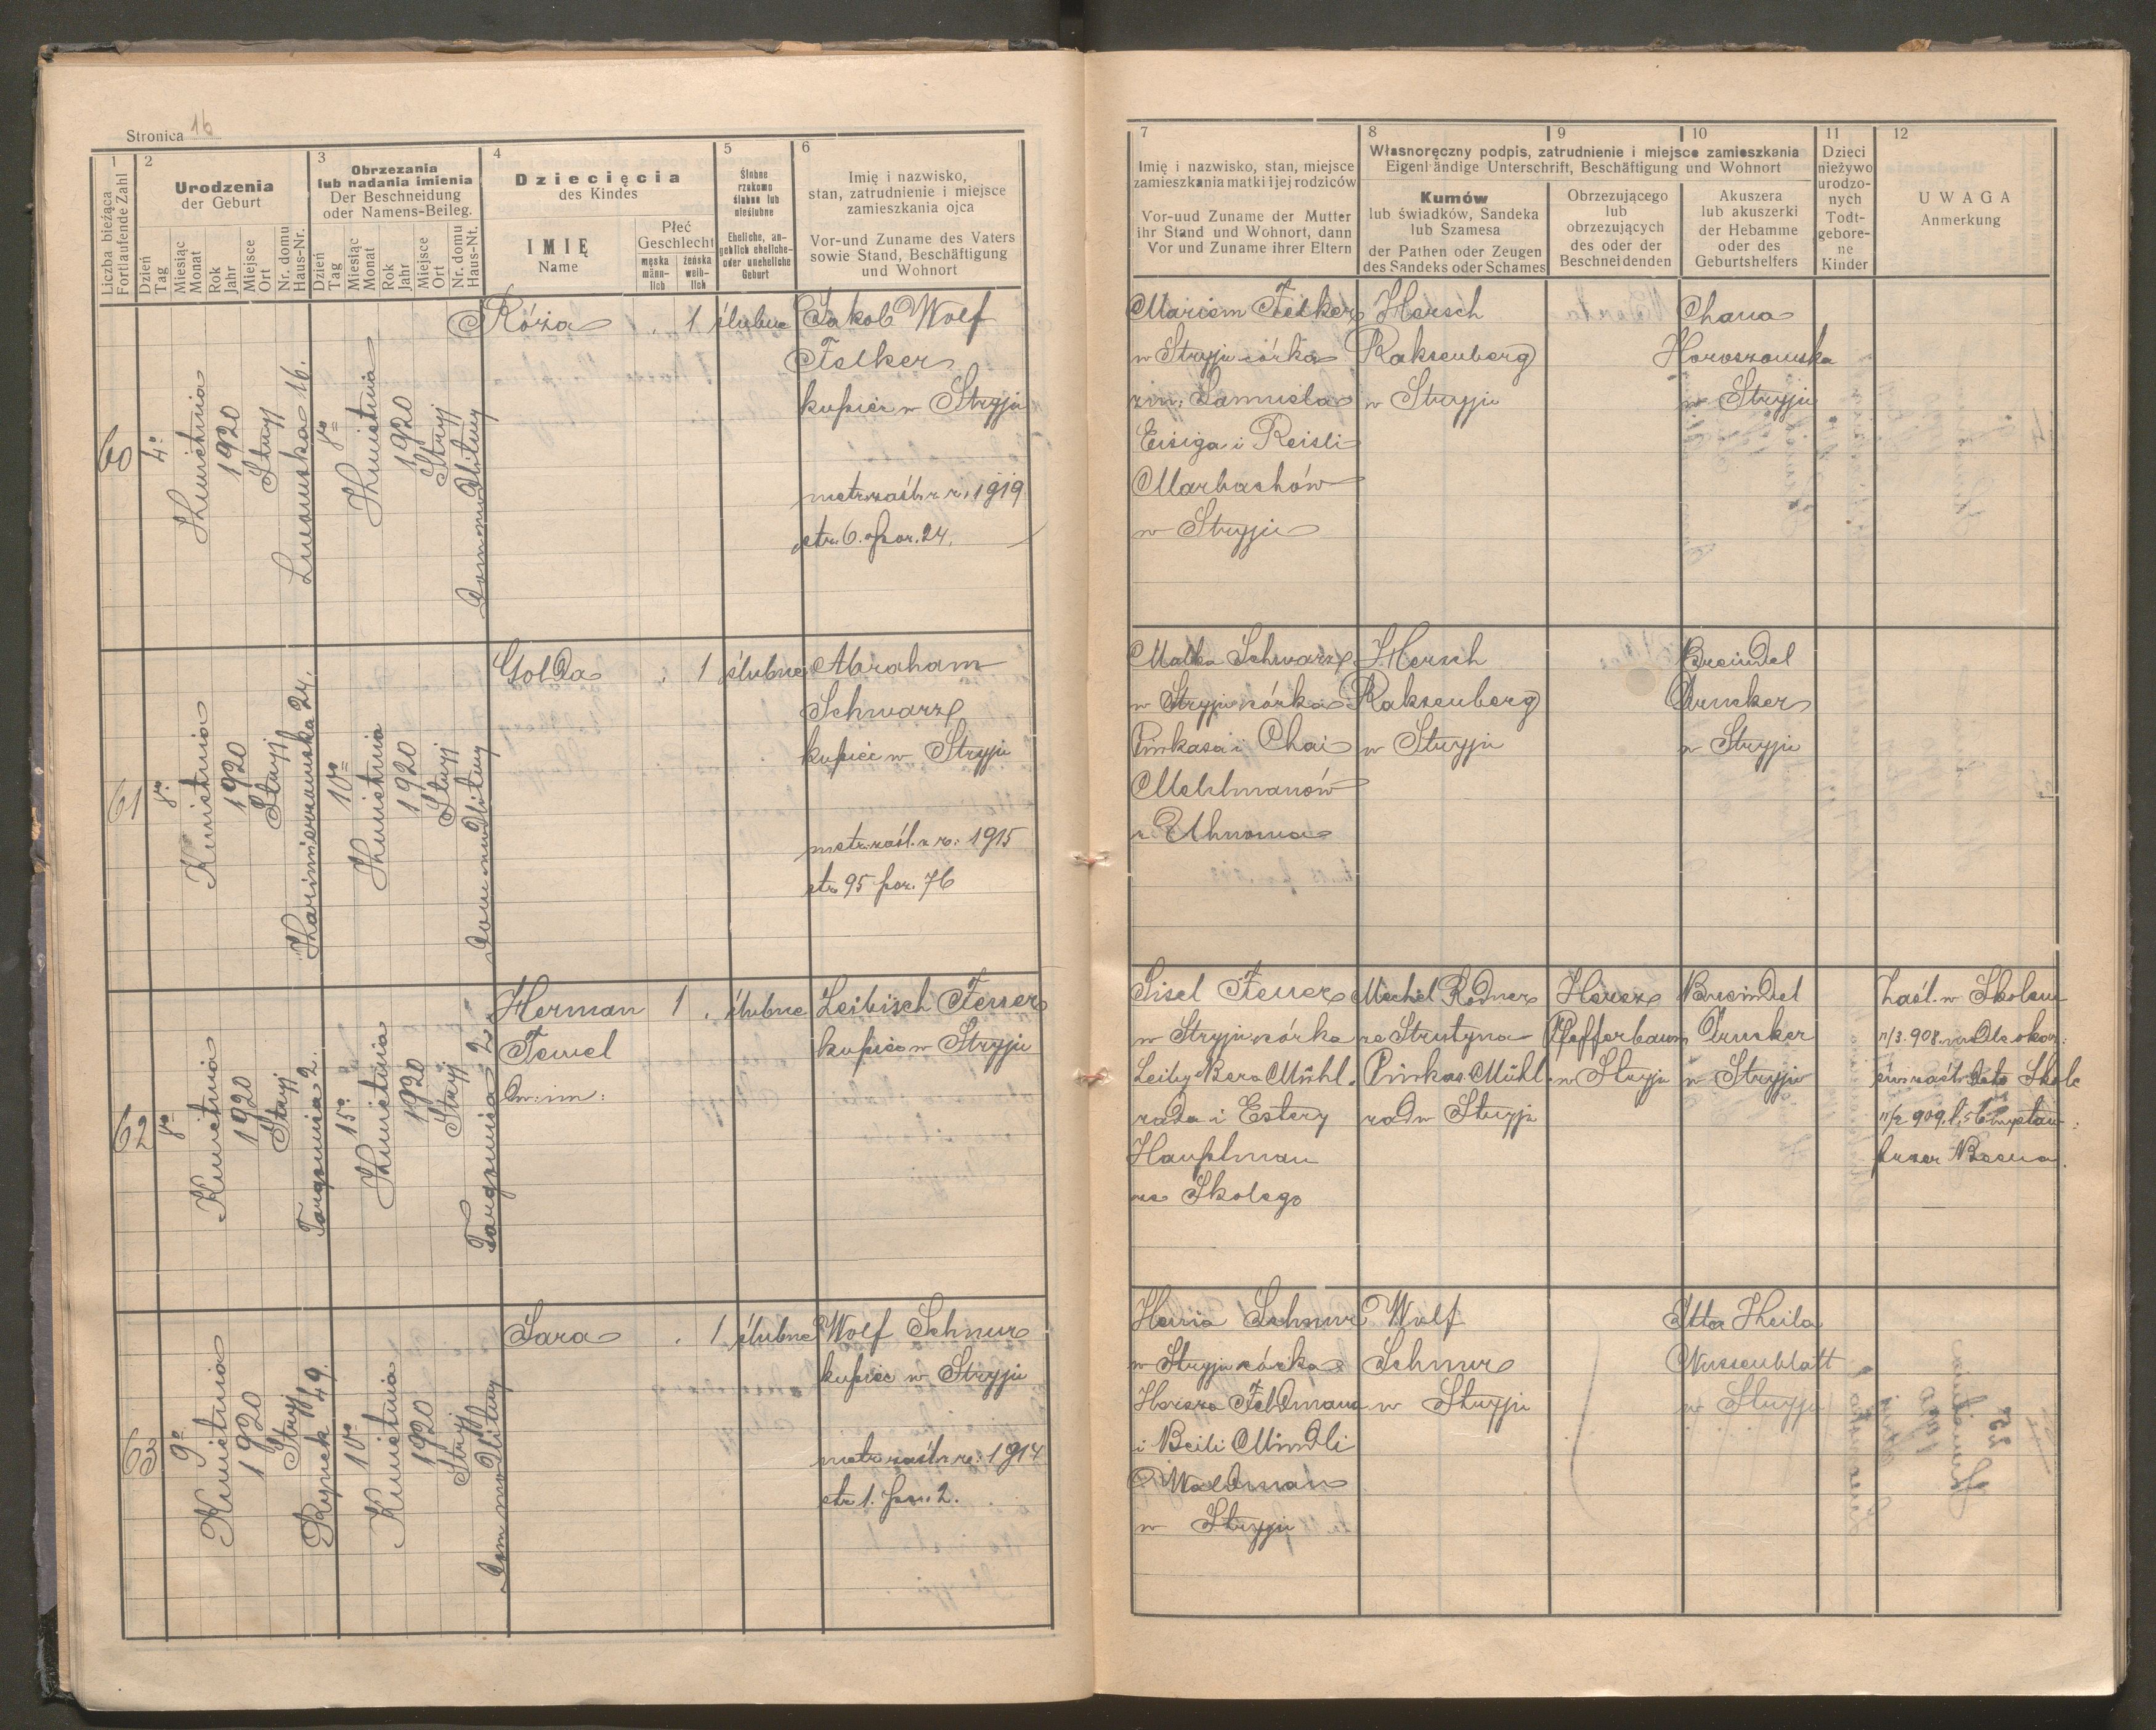 Stronica 16
1
2
3
4
5
6
Liczba bieżąca
Fortlaufende Zahl
Urodzenia
der Geburt
Dzień
Tag
Miesiąc
Monat
Rok
Jahr
Miejsce
Ort
Nr. domu
Haus-Nr.
Obrzezania
lub nadania imienia
Der Beschneidung
oder Namens-Beileg.
Dzień
Tag
Miesiąc
Monat
Rok
Jahr
Miejsce
Ort
Nr. domu
Haus-Nt.
Dziecięcia
des Kindes
IMIĘ
Name
Płeć
Geschlecht
męska
männ-
lich
żeńska
weib-
lich
Ślubne
rzekomo
ślubne lub
nieślubne
Eheliche, an-
geblich eheliche-
oder uneheliche
Geburt
Imię i nazwisko,
stan, zatrudnienie i miejsce
zamieszkania ojca
Vor-und Zuname des Vaters
sowie Stand, Beschäftigung
und Wohnort
60
4º
Kwietnia
1920
Stryj
Lwowska 16.
8º
Kwietnia
1920
Stryj
Dom modlitwy
Róża
1
ślubne
Jakob Wolf
Felker
kupiec w Stryju
metr. zaśl. z r. 1919
str. 6. poz. 24.
61
8º
Kwietnia
1920
Stryj
Kazimierzowska 24.
10º
Kwietnia
1920
Stryj
Dom modlitwy
Golda
1
ślubne
Abraham
Schwarz
kupiec w Stryju
metr. zaśl. z r: 1915
str. 95 poz. 76
62
8º
Kwietnia
1920
Stryj
Targownica 2.
15º
Kwietnia
1920
Stryj
Targownica 2.
Herman
Fewel
dw: im:
1
ślubne
Leibisch Feuer
kupiec w Stryju
63
9º
Kwietnia
1920
Stryj
Rynek 49.
10º
Kwietnia
1920
Stryj
Dom modlitwy
Sara
1
ślubne
Wolf Schnur
kupiec w Stryju
metr. zaśl. z r: 1914
str. 1. poz. 2.
7
8
9
10
11
12
Imię i nazwisko, stan, miejsce
zamieszkania matki i jej rodziców
Vor-uud Zuname der Mutter
ihr Stand und Wohnort, dann
Vor und Zuname ihrer Eltern
Własnoręczny podpis, zatrudnienie i miejsce zamieszkania
Eigenhändige Unterschrift, Beschäftigung und Wohnort
Kumów
lub świadków, Sandeka
lub Szamesa
der Pathen oder Zeugen
des Sandeks oder Schames
Obrzezującego
lub
obrzezujących
des oder der
Beschneidenden
Akuszera
lub akuszerki
der Hebamme
oder des
Geburtshelfers
Dzieci
nieżywo
urodzo-
nych
Todt-
gebore-
ne
Kinder
UWAGA
Anmerkung
Mariem Felker
w Stryju córka
zm. Samuela
Eisiga i Reisli
Marbachów
w Stryju
Hersch
Raksenberg
w Stryju
Chana
Horoszowska
w Stryju
Malka Schwarz
w Stryju córka
Pinkasa i Chai
Mehlmanów
z Uhnowa
Hersch
Raksenberg
w Stryju
Breindel
Drucker
w Stryju
Sisel Feuer
w Stryju córka
Leiby Bera Mühl-
rada i Estery
Hauptman
ze Skolego
Mechel Rodner
ze Strutyna
Pinkas Mühl-
rad w Stryju
Hersz
Pfefferbaum
w Stryju
Breindel
Drucker
w Stryju
Zaśl. w Skolem
Henia Schnur
w Stryju córka
Hersza Feldmana
i Beili Mindli
Waldman
w Stryju
Wolf
Schnur
w Stryju
Itta Heila
Nussenblatt
w Stryju